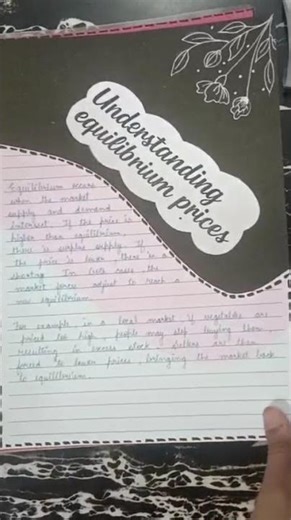 Understanding
equilibrium prices
Equilibrium occurs
when the market
supply and demand
intersect. If the price is
higher than equilibrium,
there is surplus supply. If
the price is lower, there is a
shortage. In both cases, the
market forces adjust to reach a
new equilibrium.
For example, in a local market if vegetables are
priced too high, people may stop buying them,
resulting in excess stock. Sellers are then
forced to lower prices, bringing the market back
to equilibrium.